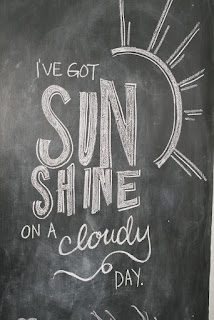 I'VE GOT
SUN
SHINE
ON A cloudy
DAY.